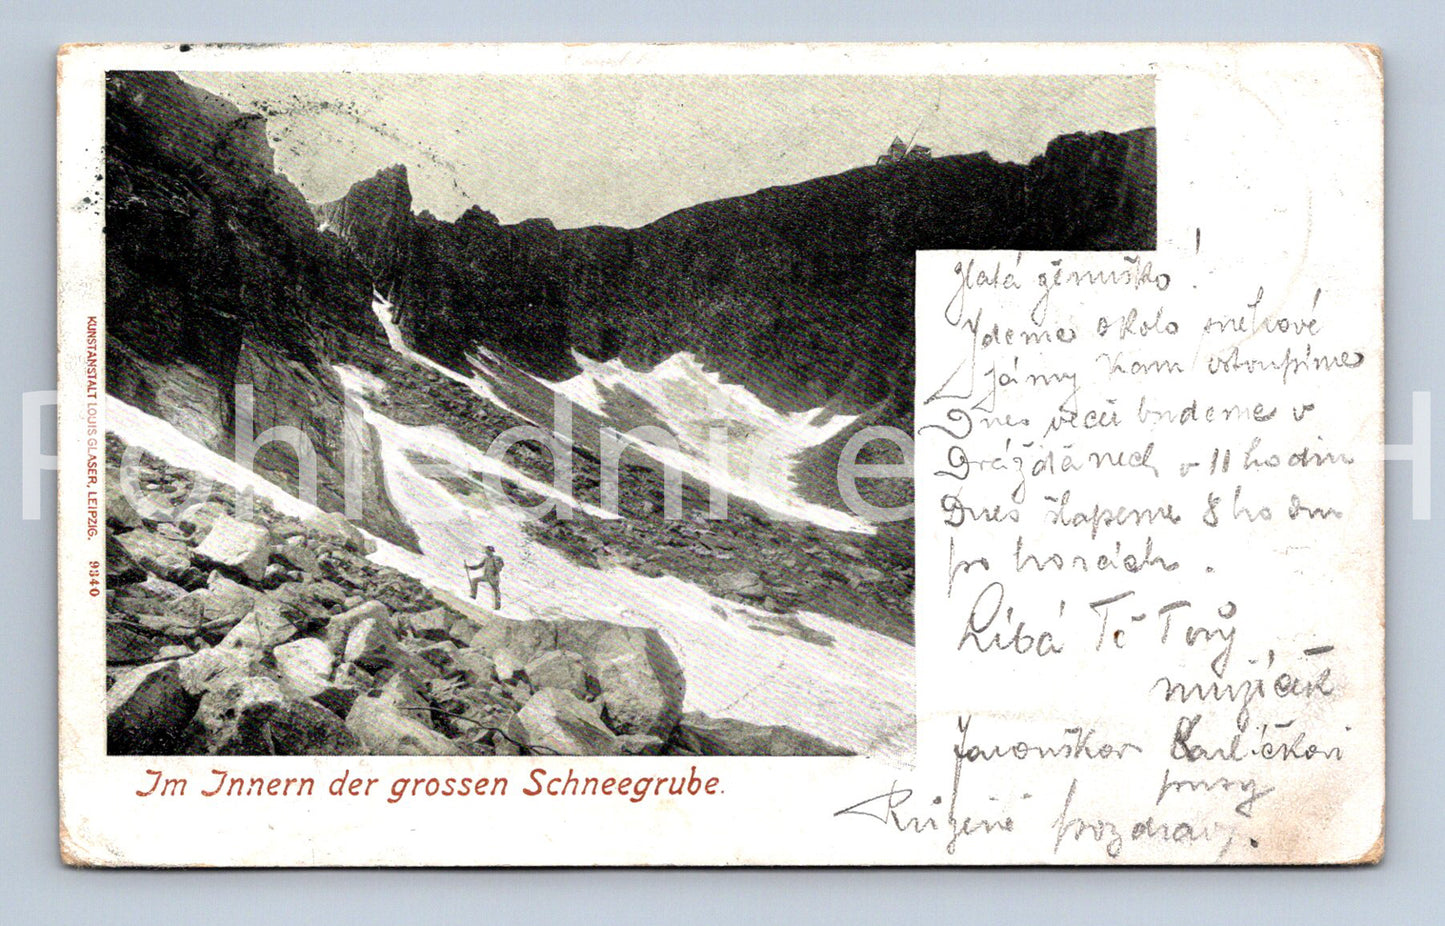 KUNSTANSTALT LOUIS GLASER, LEIPZIG. 9840
Im Innern der grossen Schneegrube.
Zlatá žěnuško!
Jdeme okolo sněhové
jámy kam vstoupíme
Dnes večer budeme v
Drážďanech v 11 hodin
Dnes šlapeme 8 hodin
po horách.
Líbá Tě Tvůj
mužíček
Jarouškovi Karlíčkovi
pusy
Růženě pozdravy.
Pohlednice H